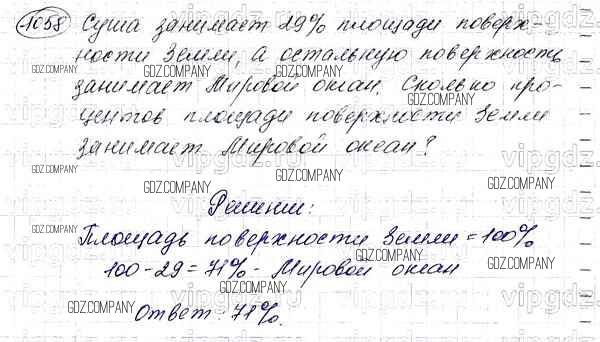 1058 Суша занимает 29% площади поверх-
ности Земли, а остальную поверхность
занимает Мировой океан. Сколько про-
центов площади поверхности Земли
занимает Мировой океан?
Решение:
Площадь поверхности Земли = 100%
100 - 29 = 71% - Мировой океан
Ответ: 71%.